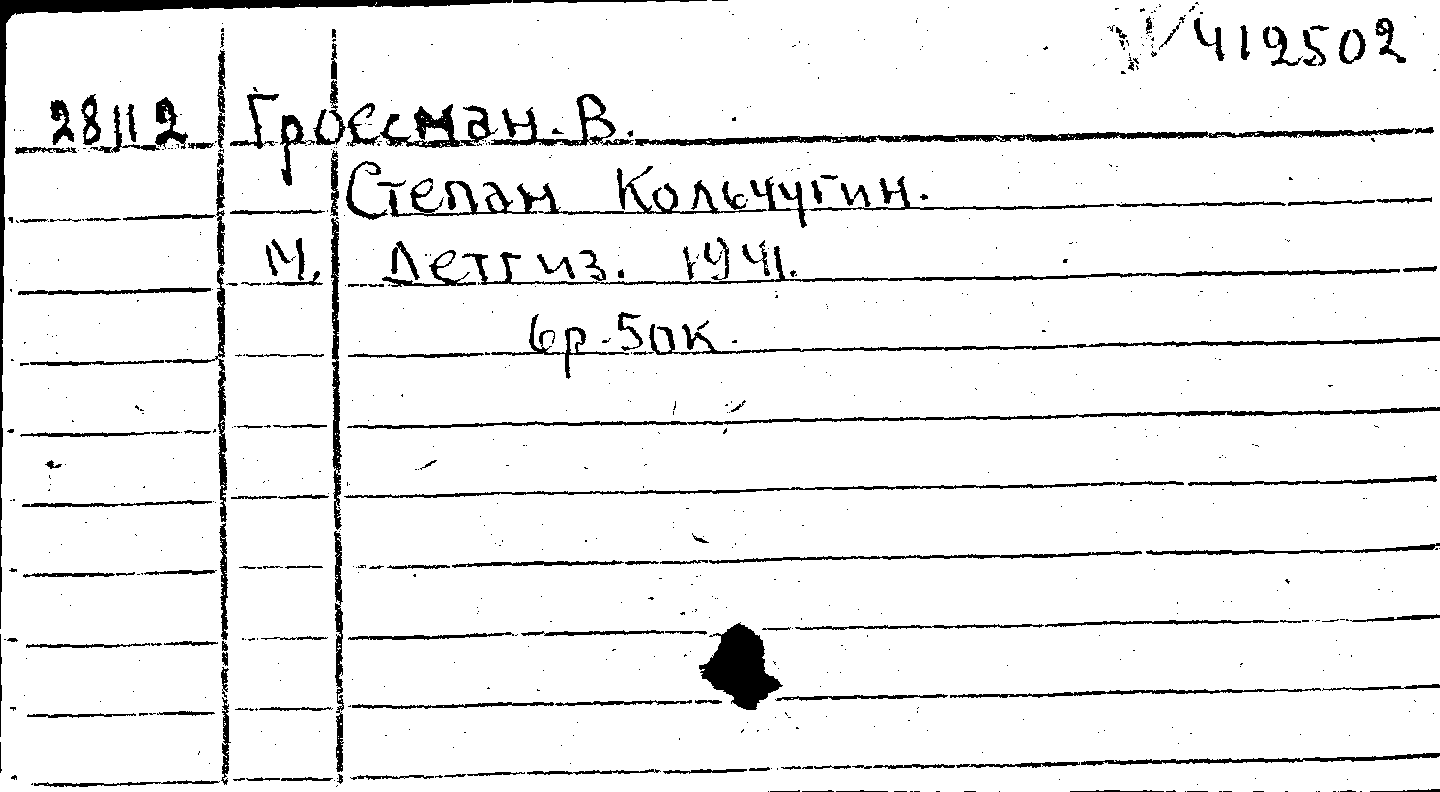 412502
28112 Гроссман. В.
Степан Кольчугин.
М. Детгиз. 1941.
6р. 50к.